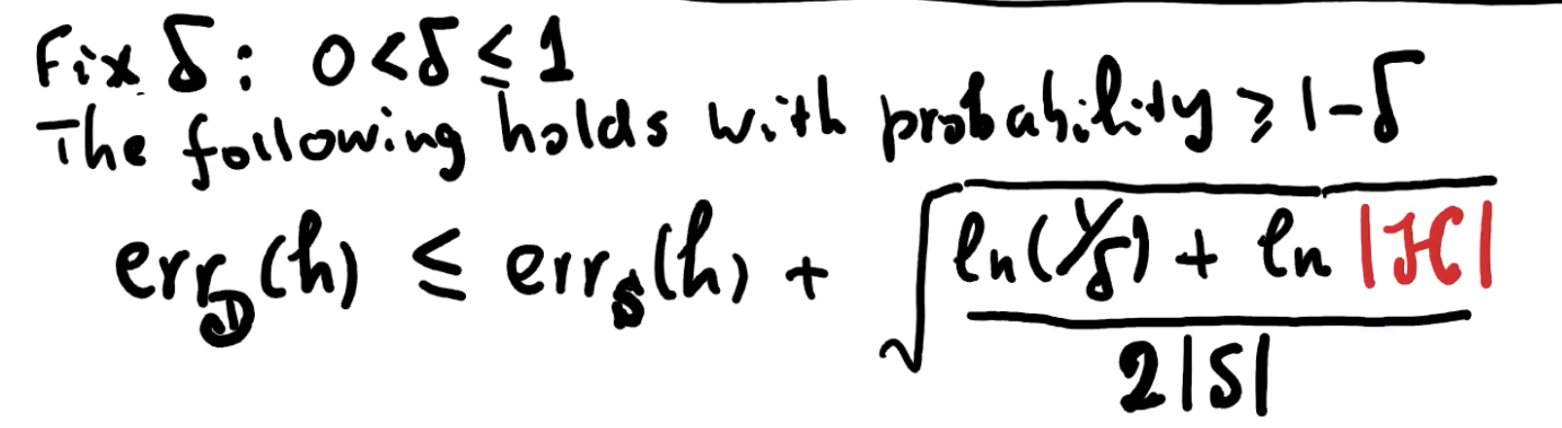 Fix δ: 0<δ≤1
The following holds with probability ≥ 1-δ
err_D(h) ≤ err_S(h) + √((ln(1/δ) + ln |ℋ|)/(2|S|))